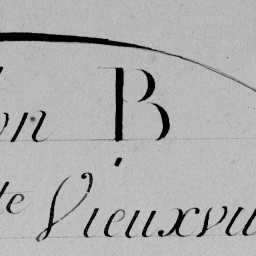 on B
te Vieuxvil